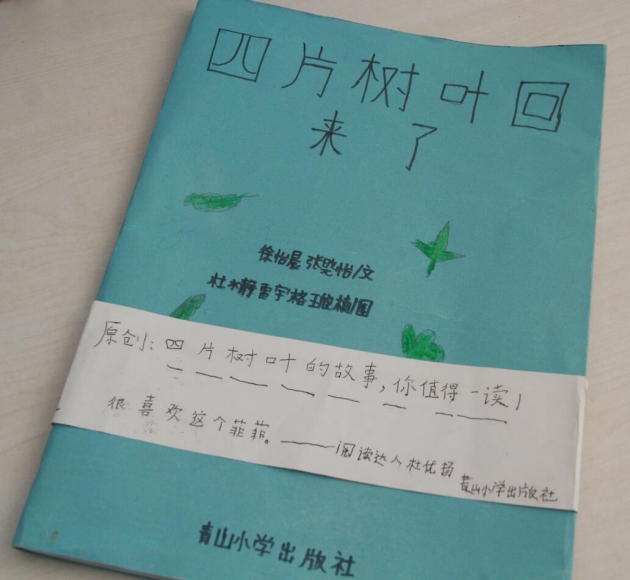 四片树叶回
来了
徐怡晨 张晓怡/文
杜木静 雷宇格 王梭楠/图
原创:四片树叶的故事,你值得一读!
很喜欢这个菲菲。——阅读达人杜优扬
青山小学出版社
青山小学出版社